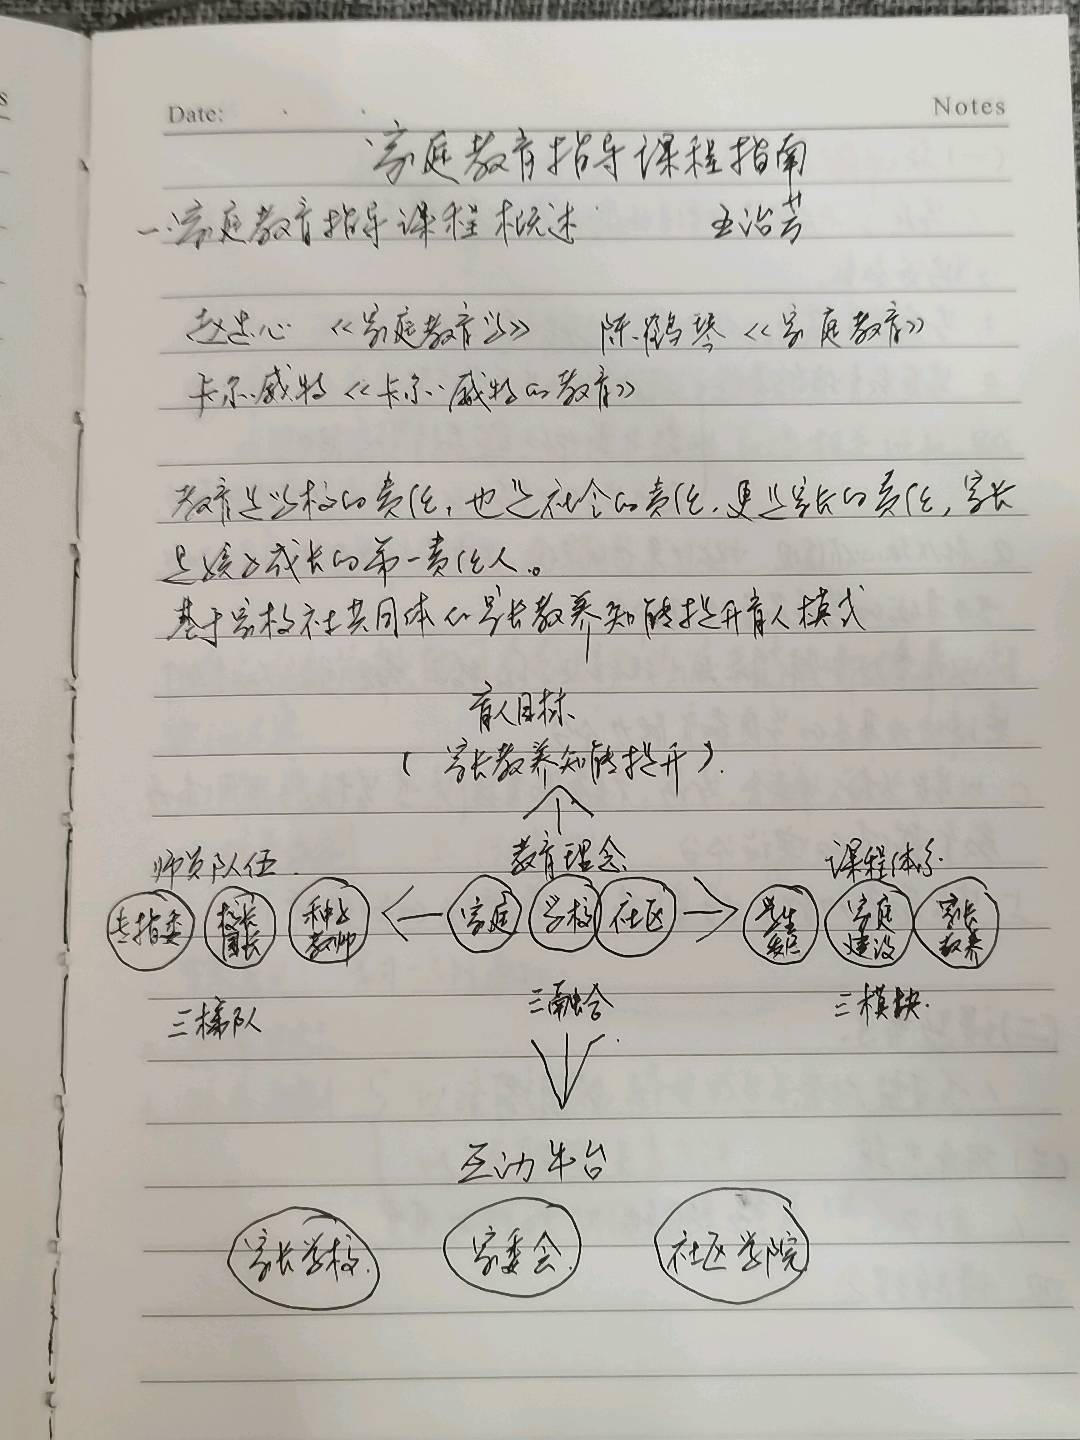 Date:
Notes
家庭教育指导课程指南
一.家庭教育指导课程概述 王治芳
赵忠心《家庭教育学》 陈鹤琴《家庭教育》
卡尔.威特《卡尔.威特的教育》
教育是学校的责任，也是社会的责任，更是家长的责任，家长
是孩子成长的第一责任人。
基于家校社共同体的家长教养知能提升育人模式
育人目标
（家长教养知能提升）.
师资队伍 教育理念 课程体系
专指委 校长园长 种子教师 家庭 学校 社区 学生发展 家庭建设 家长教养
三梯队 三融合 三模块.
互动平台
家长学校. 家委会. 社区学院